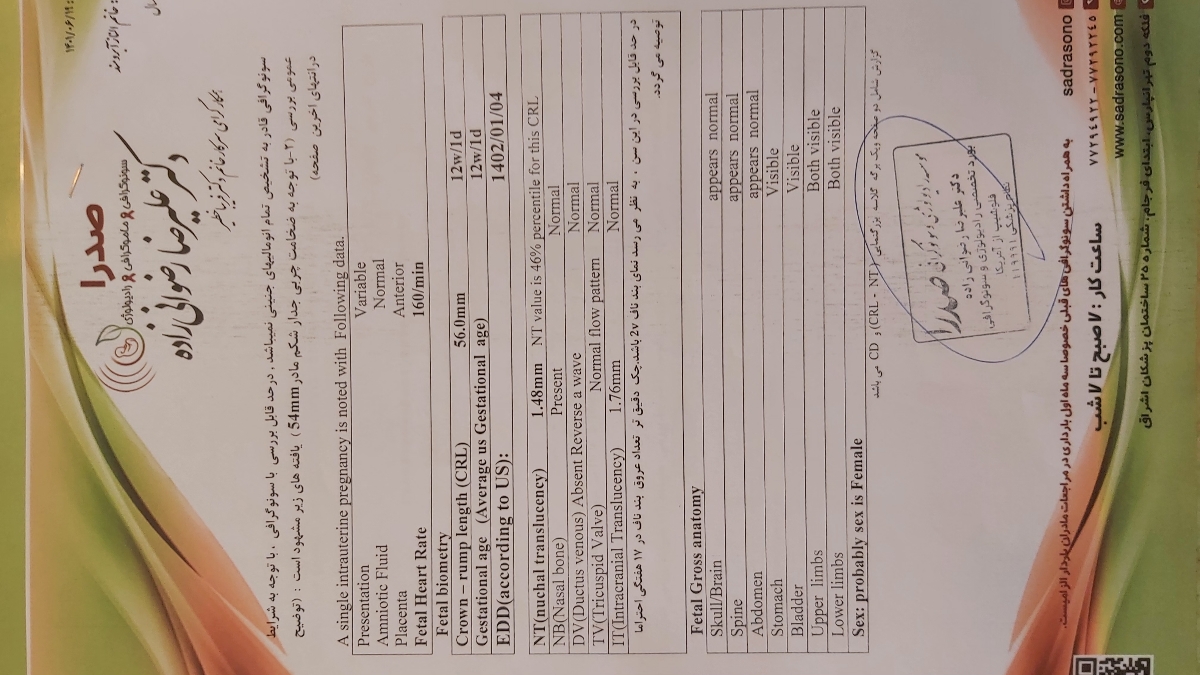 ۱۴۰۱/۰۶/۱۹:
صدرا
سونوگرافی & ماموگرافی & رادیولوژی
دکتر علیرضا رضوانی زاده
سونوگرافی قادر به تشخیص تمام انومالیهای جنینی نمیباشد . درحد قابل بررسی با سونوگرافی ، با توجه به شرایط
عمومی بررسی (۲-با توجه به ضخامت چربی جدار شکم مادر 54mm ) یافته های زیر مشهود است : (توضیح
درانتهای اخرین صفحه)
A single intrauterine pregnancy is noted with Following data.
Presentation Variable
Amniotic Fluid Normal
Placenta Anterior
Fetal Heart Rate 160/min
Fetal biometry
Crown – rump length (CRL) 56.0mm 12w/1d
Gestational age (Average us Gestational age) 12w/1d
EDD(according to US): 1402/01/04
NT(nuchal translucency) 1.48mm NT value is 46% percentile for this CRL
NB(Nasal bone) Present Normal
DV(Ductus venous) Absent Reverse a wave Normal
TV(Tricuspid Valve) Normal flow pattern Normal
IT(Intracranial Translucency) 1.76mm Normal
در حد قابل بررسی در این سن ، به نظر می رسد نمای بند ناف 2v باشد.چک دقیق تر تعداد عروق بند ناف در ۱۷ هفتگی احتراما
توصیه می گردد.
Fetal Gross anatomy
Skull/Brain appears normal
Spine appears normal
Abdomen appears normal
Stomach Visible
Bladder Visible
Upper limbs Both visible
Lower limbs Both visible
Sex: probably sex is Female
گزارش شامل دو صفحه ویک برگ کلاسه بزرگنمایی (CRL - NT) و CD می باشد
موسسه رادیولوژی و سونوگرافی صدرا
دکتر علیرضا رضوانی زاده
بورد تخصصی رادیولوژی و سونوگرافی
فلوشیپ از آمریکا
به همراه داشتن سونوگرافی های قبلی خصوصا سه ماه اول بارداری در مراجعات مادران باردار الزامیست.
ساعت کار : ۷ صبح تا ۱۷ شب
۷۷۲۹۴۹۲۲ - ۷۷۲۹۲۲۴۵
sadrasono
www.sadrasono.com
فلکه دوم تهرانپارس، ابتدای فرجام، شماره ۲۵ ساختمان پزشکان اشراق